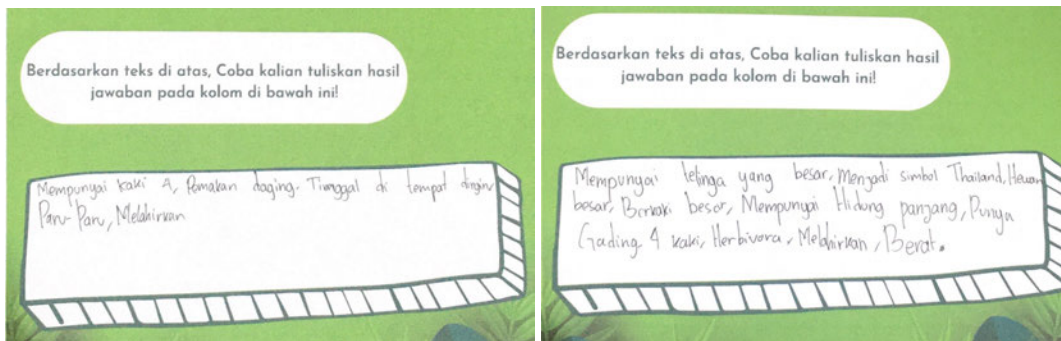 Berdasarkan teks di atas, Coba kalian tuliskan hasil
jawaban pada kolom di bawah ini!
Mempunyai kaki 4, Pemakan daging. Tinggal di tempat dingin
Paru-Paru, Melahirkan
Berdasarkan teks di atas, Coba kalian tuliskan hasil
jawaban pada kolom di bawah ini!
Mempunyai telinga yang besar, Menjadi simbol Thailand, Hewan
besar, Berkaki besar, Mempunyai Hidung panjang, Punya
Gading. 4 kaki, Herbivora, Melahirkan, Berat.